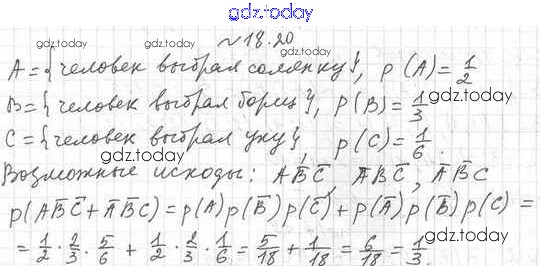 gdz.today
gdz.today gdz.today №18.20
A = {человек выбрал солянку}, p(A) = 1/2
gdz.today
B = {человек выбрал борщ}, p(B) = 1/3
gdz.today
C = {человек выбрал уху}, p(C) = 1/6.
gdz.today gdz.today
Возможные исходы: AB̅C̅, A̅BC̅, A̅B̅C
p(AB̅C̅ + A̅B̅C) = p(A)p(B̅)p(C̅) + p(A̅)p(B̅)p(C) =
= 1/2 · 2/3 · 5/6 + 1/2 · 2/3 · 1/6 = 5/18 + 1/18 = 6/18 = 1/3.
gdz.today gdz.today